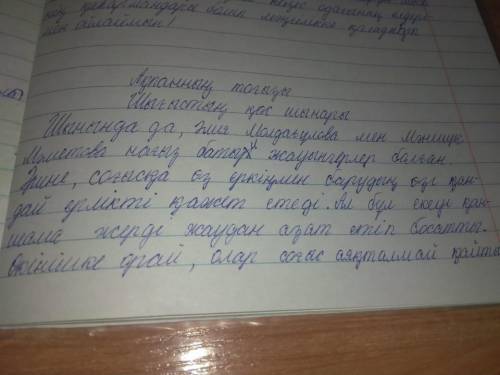 Ақпанның тоғызы
Шығыстың қос шынары
Шынында да, Әлия Молдағұлова мен Мәншүк
Мәметова нағыз батыр жауынгерлер болған.
Әрине, соғысқа өз еркіңмен барудың өзі қан-
дай ерлікті қажет етеді. Ал бұл екеуі қан-
шама жерді жаудан азат етіп босатты.
Өкінішке орай, олар соғыс аяқталмай қайтыс